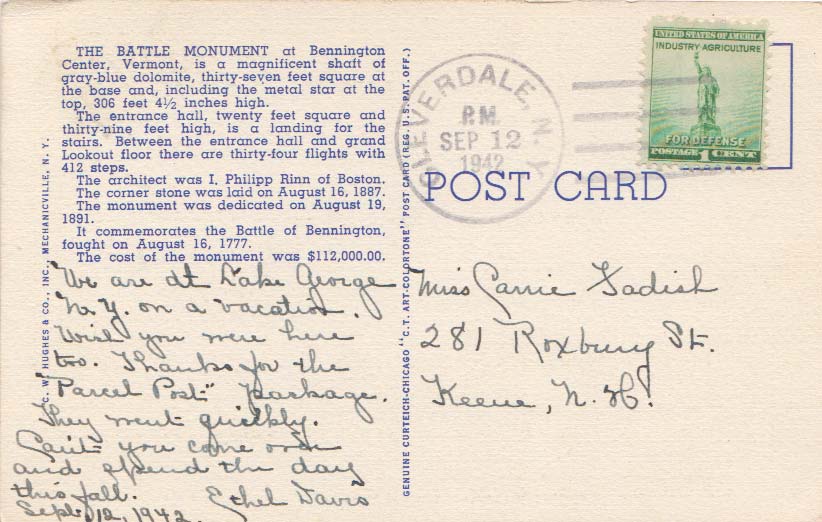 THE BATTLE MONUMENT at Bennington
Center, Vermont, is a magnificent shaft of
gray-blue dolomite, thirty-seven feet square at
the base and, including the metal star at the
top, 306 feet 4½ inches high.
The entrance hall, twenty feet square and
thirty-nine feet high, is a landing for the
stairs. Between the entrance hall and grand
Lookout floor there are thirty-four flights with
412 steps.
The architect was I. Philipp Rinn of Boston.
The corner stone was laid on August 16, 1887.
The monument was dedicated on August 19,
1891.
It commemorates the Battle of Bennington,
fought on August 16, 1777.
The cost of the monument was $112,000.00.
We are at Lake George
N.Y. on a vacation.
Wish you were here
too. Thanks for the
"Parcel Post" package.
They went quickly.
Can't you come over
and spend the day
this fall. Ethel Davis
Sept. 12, 1942.
C. W. HUGHES & CO., INC., MECHANICVILLE, N. Y.
GENUINE CURTEICH-CHICAGO "C.T. ART-COLORTONE" POST CARD (REG. U.S. PAT. OFF.)
CLEVERDALE, N.Y.
P.M.
SEP 12
1942
UNITED STATES OF AMERICA
INDUSTRY AGRICULTURE
FOR DEFENSE
POSTAGE 1 CENT
POST CARD
Miss Carrie Gadish
281 Roxbury St.
Keene, N. H.